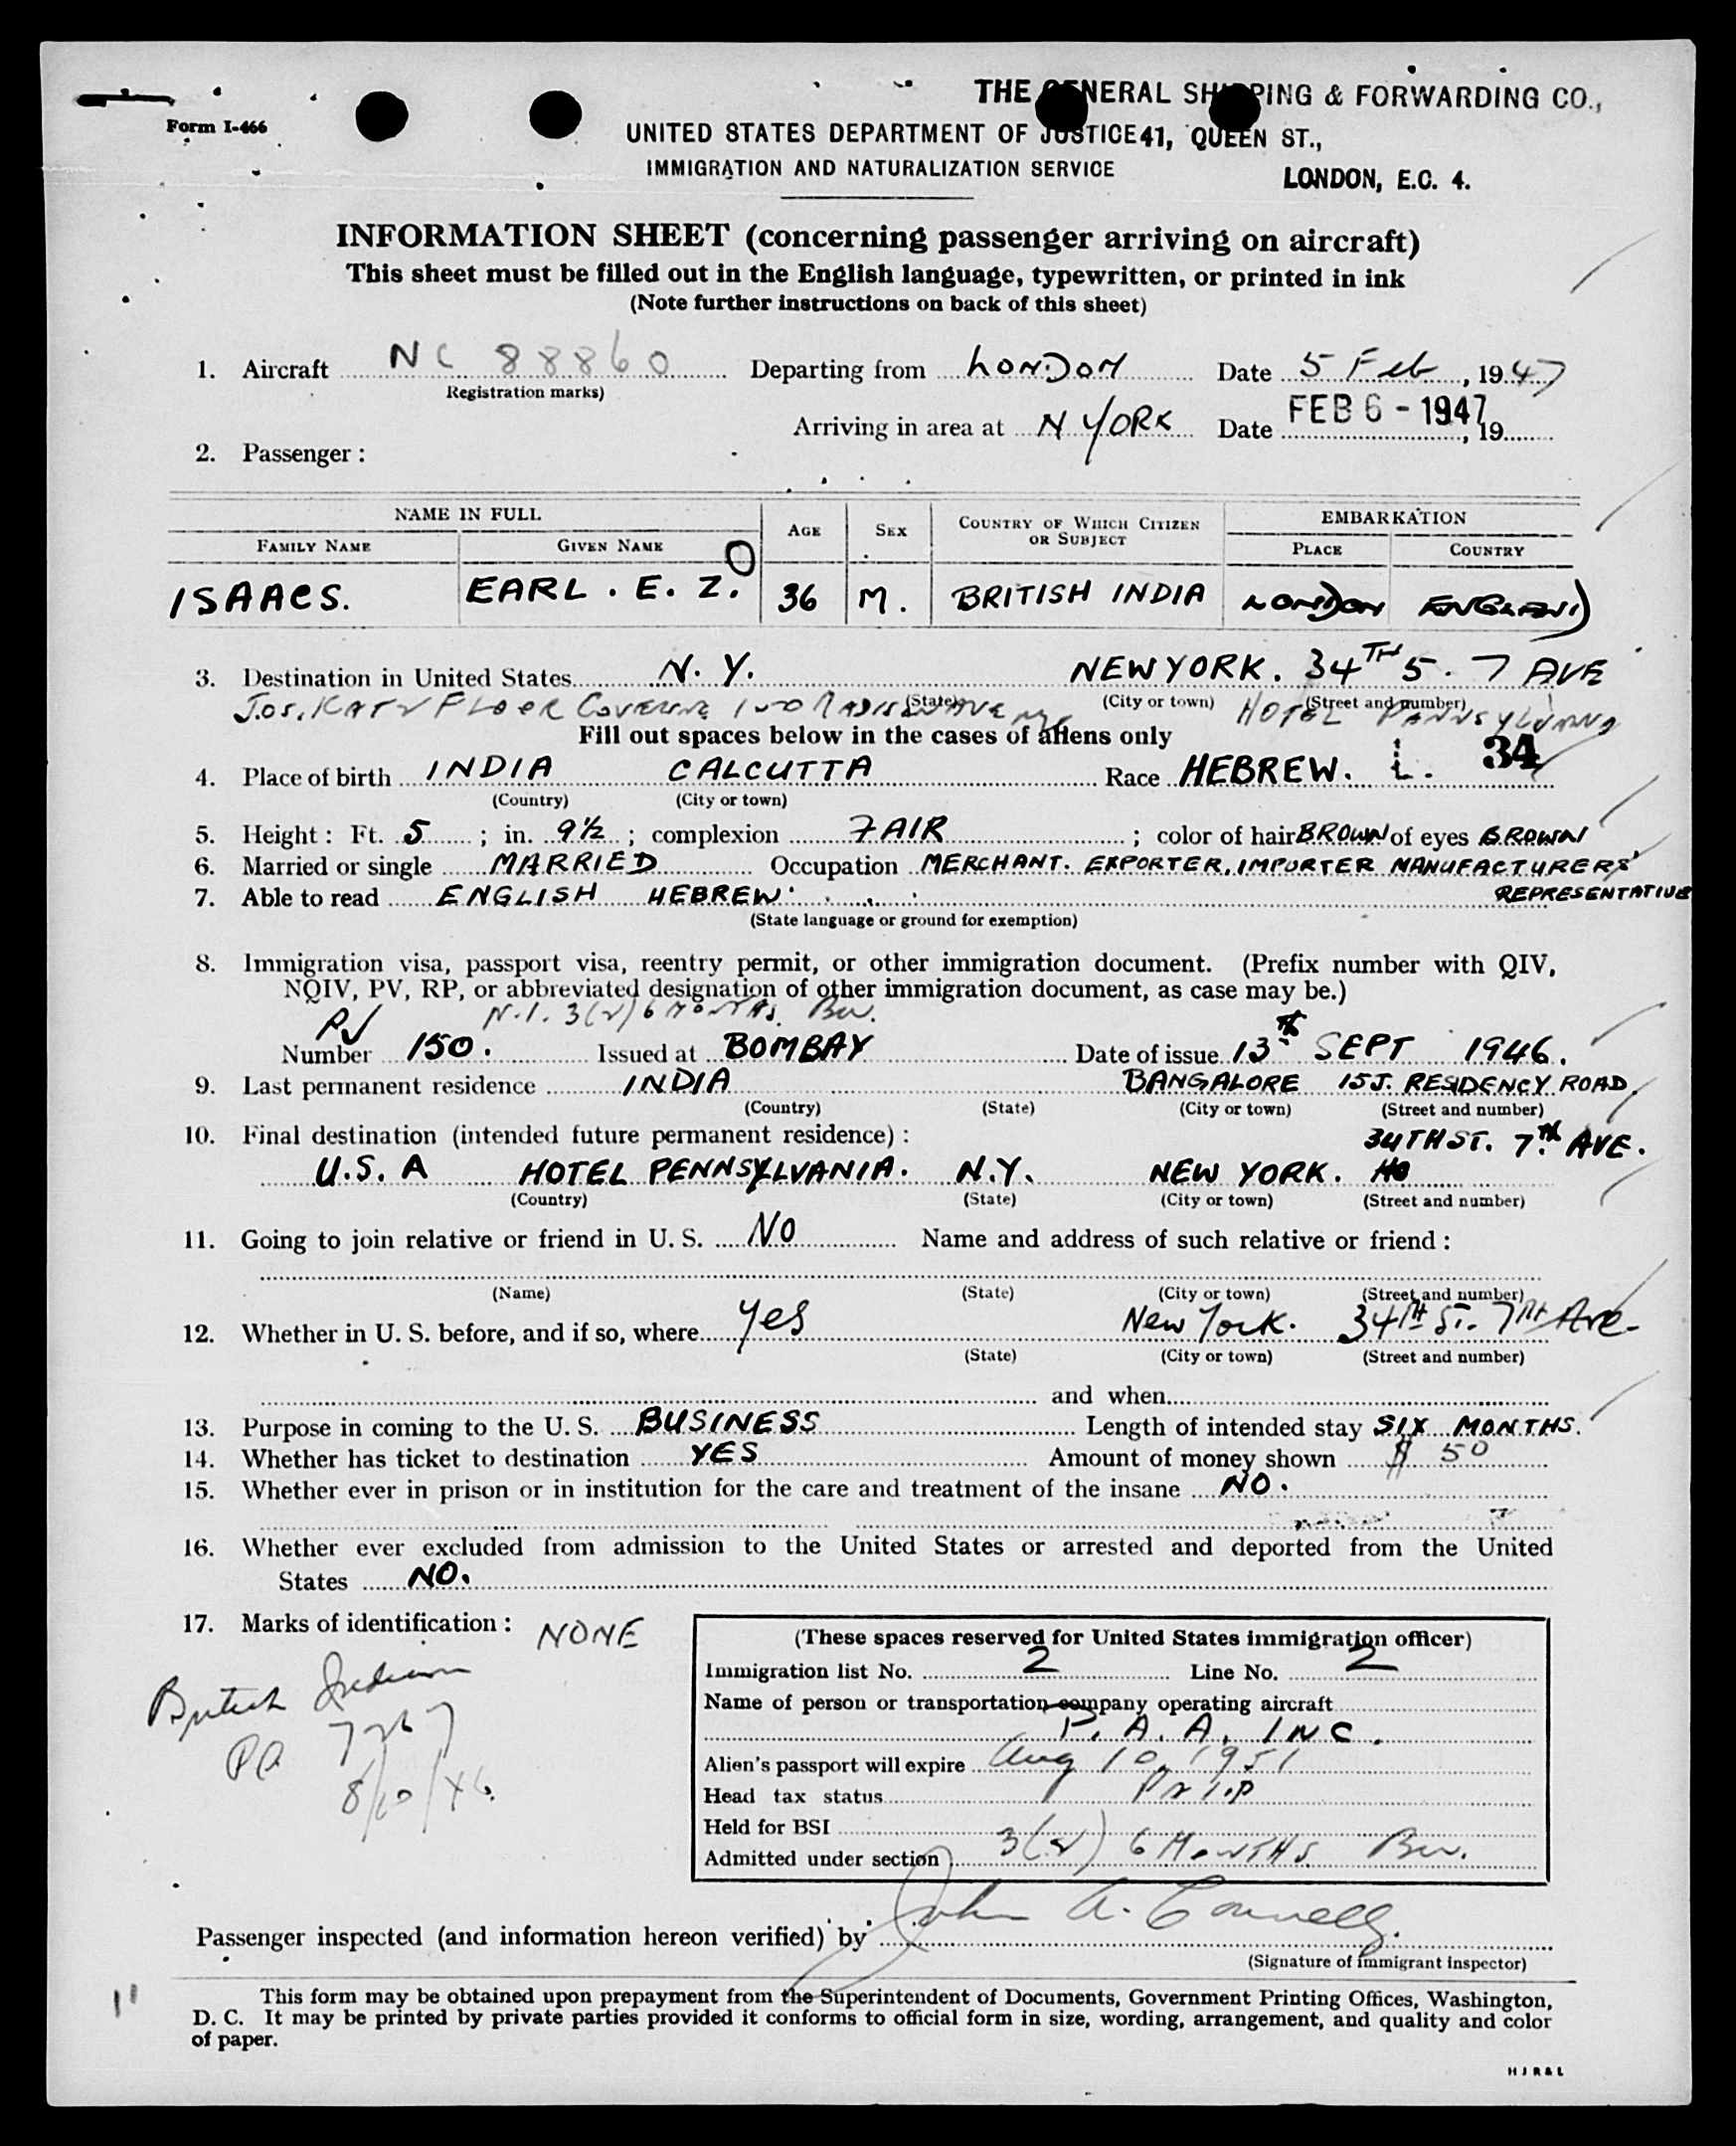 THE GENERAL SHIPPING & FORWARDING CO.,
Form I-466
UNITED STATES DEPARTMENT OF JUSTICE 41, QUEEN ST.,
IMMIGRATION AND NATURALIZATION SERVICE
LONDON, E.C. 4.
INFORMATION SHEET (concerning passenger arriving on aircraft)
This sheet must be filled out in the English language, typewritten, or printed in ink
(Note further instructions on back of this sheet)
1. Aircraft NC 88860 Departing from LONDON Date 5 Feb, 1947
Registration marks)
Arriving in area at N YORK Date FEB 6 - 1947, 19
2. Passenger :
NAME IN FULL AGE SEX COUNTRY OF WHICH CITIZEN OR SUBJECT EMBARKATION
FAMILY NAME GIVEN NAME PLACE COUNTRY
ISAACS. EARL . E. Z. O 36 M. BRITISH INDIA LONDON ENGLAND
3. Destination in United States N. Y. NEW YORK. 34TH S. 7 AVE
(State) (City or town) (Street and number)
FLOOR COVERING MADISON AVE NYC HOTEL PENNSYLVANIA
Fill out spaces below in the cases of aliens only
34
4. Place of birth INDIA CALCUTTA Race HEBREW. L.
(Country) (City or town)
5. Height : Ft. 5 ; in. 9½ ; complexion FAIR ; color of hair BROWN of eyes BROWN
6. Married or single MARRIED Occupation MERCHANT. EXPORTER, IMPORTER MANUFACTURERS'
7. Able to read ENGLISH HEBREW REPRESENTATIVE
(State language or ground for exemption)
8. Immigration visa, passport visa, reentry permit, or other immigration document. (Prefix number with QIV,
NQIV, PV, RP, or abbreviated designation of other immigration document, as case may be.)
PV 3(2) 6 MONTHS
Number 150. Issued at BOMBAY Date of issue 13th SEPT 1946.
9. Last permanent residence INDIA BANGALORE 15J. RESIDENCY ROAD
(Country) (State) (City or town) (Street and number)
10. Final destination (intended future permanent residence) :
34TH ST. 7TH AVE.
U.S.A HOTEL PENNSYLVANIA. N.Y. NEW YORK. HO
(Country) (State) (City or town) (Street and number)
11. Going to join relative or friend in U. S. NO Name and address of such relative or friend :
(Name) (State) (City or town) (Street and number)
12. Whether in U. S. before, and if so, where Yes New York. 34TH ST. 7TH Ave.
(State) (City or town) (Street and number)
and when
13. Purpose in coming to the U. S. BUSINESS Length of intended stay SIX MONTHS.
14. Whether has ticket to destination YES Amount of money shown $ 50
15. Whether ever in prison or in institution for the care and treatment of the insane NO.
16. Whether ever excluded from admission to the United States or arrested and deported from the United
States NO.
17. Marks of identification : NONE
British Indian
8/10/46
(These spaces reserved for United States immigration officer)
Immigration list No. 2 Line No. 2
Name of person or transportation company operating aircraft
P. A. A. INC.
Alien's passport will expire Aug 10, 1951
Head tax status
Held for BSI
Admitted under section 3(2) 6 MONTHS
Passenger inspected (and information hereon verified) by John A. Connell.
(Signature of immigrant inspector)
This form may be obtained upon prepayment from the Superintendent of Documents, Government Printing Offices, Washington,
D. C. It may be printed by private parties provided it conforms to official form in size, wording, arrangement, and quality and color
of paper.
H J R & L